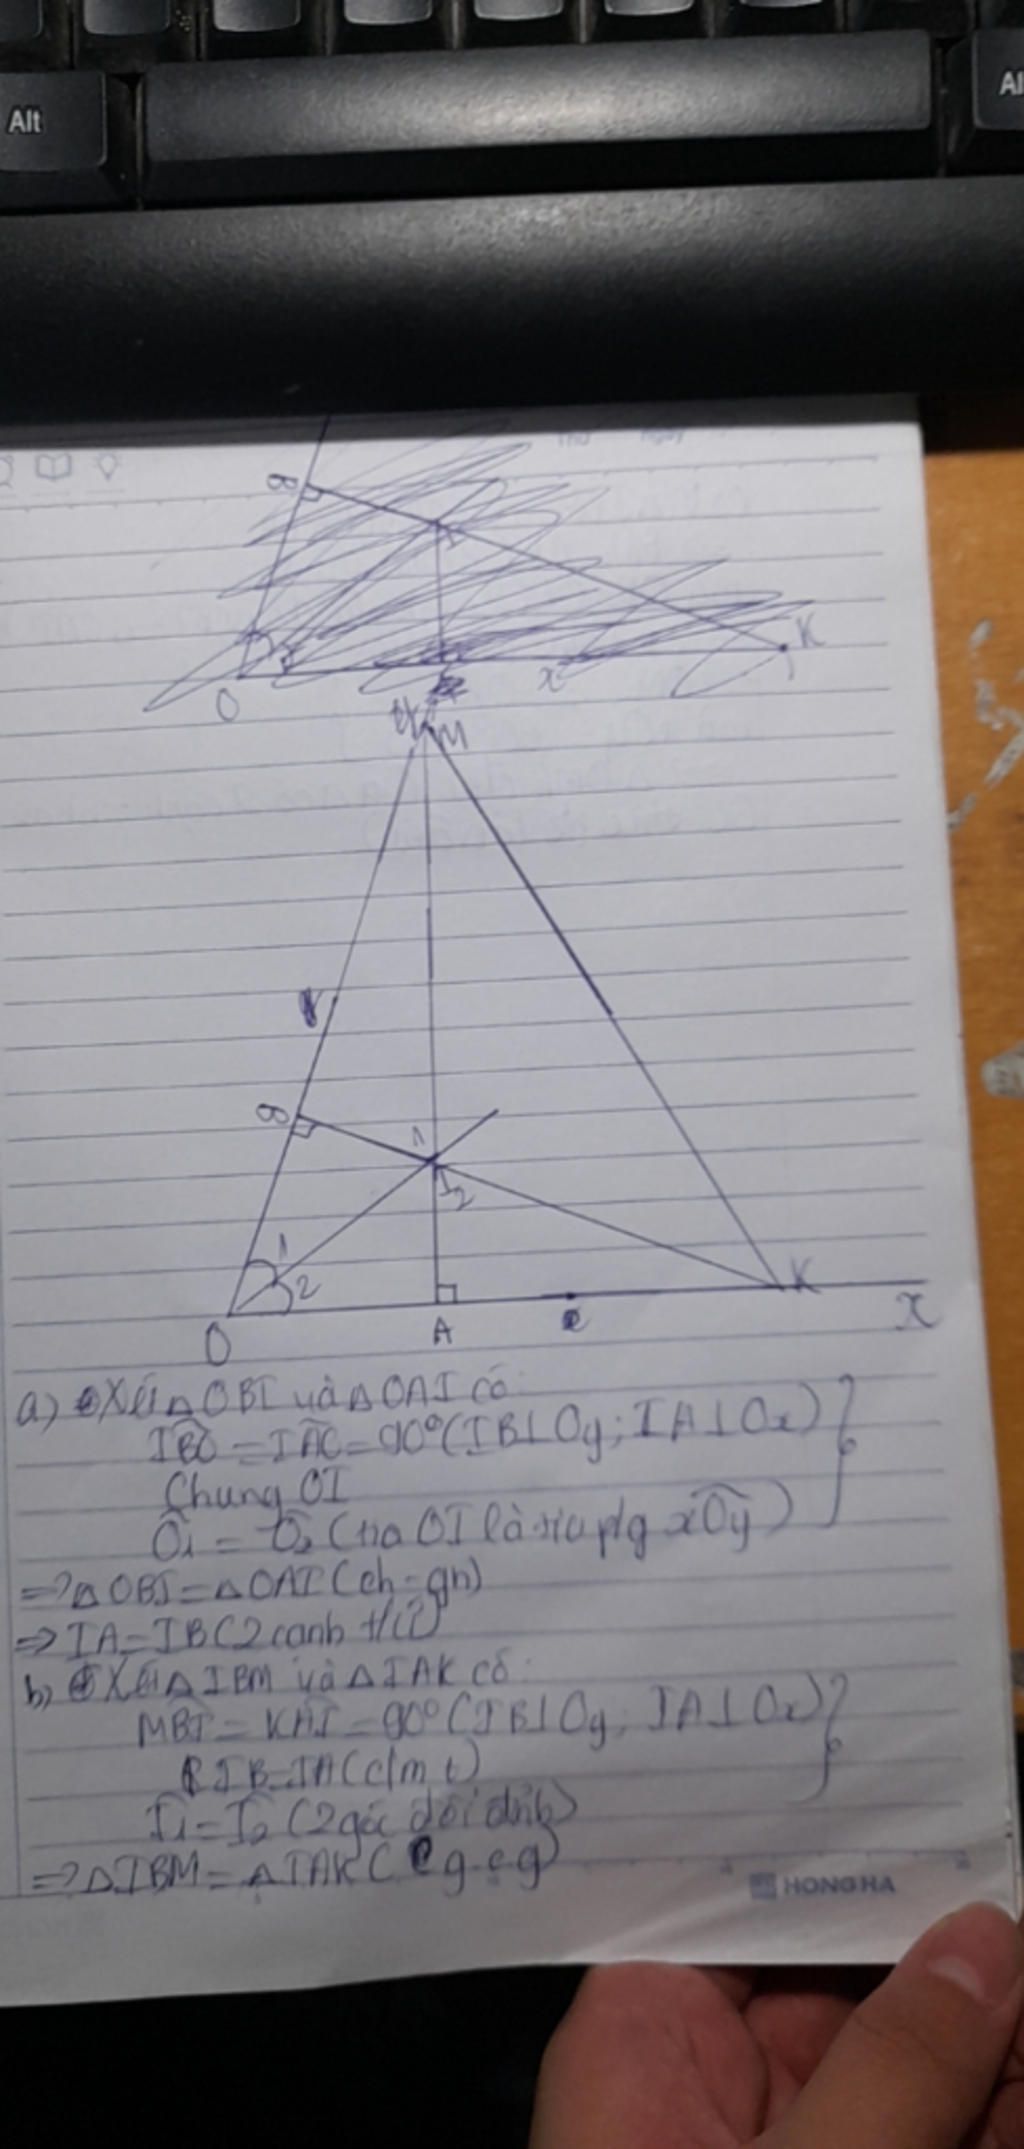 Alt
Al
B
I
K
O
x
y
M
B
1
I
2
1
2
O
A
K
x
a) Xét △OBI và △OAI có:
IBO = IAO = 90° (IB⊥Oy; IA⊥Ox)
Chung OI
O1 = O2 (tia OI là tia p/g xOy)
=> △OBI = △OAI (ch-gn)
=> IA = IB (2 cạnh t/ứ)
b) Xét △IBM và △IAK có:
MBI = KAI = 90° (IB⊥Oy; IA⊥Ox)
IB=IA (c/m t)
I1 = I2 (2 góc đối đỉnh)
=> △IBM = △IAK (g-c-g)
HONG HA